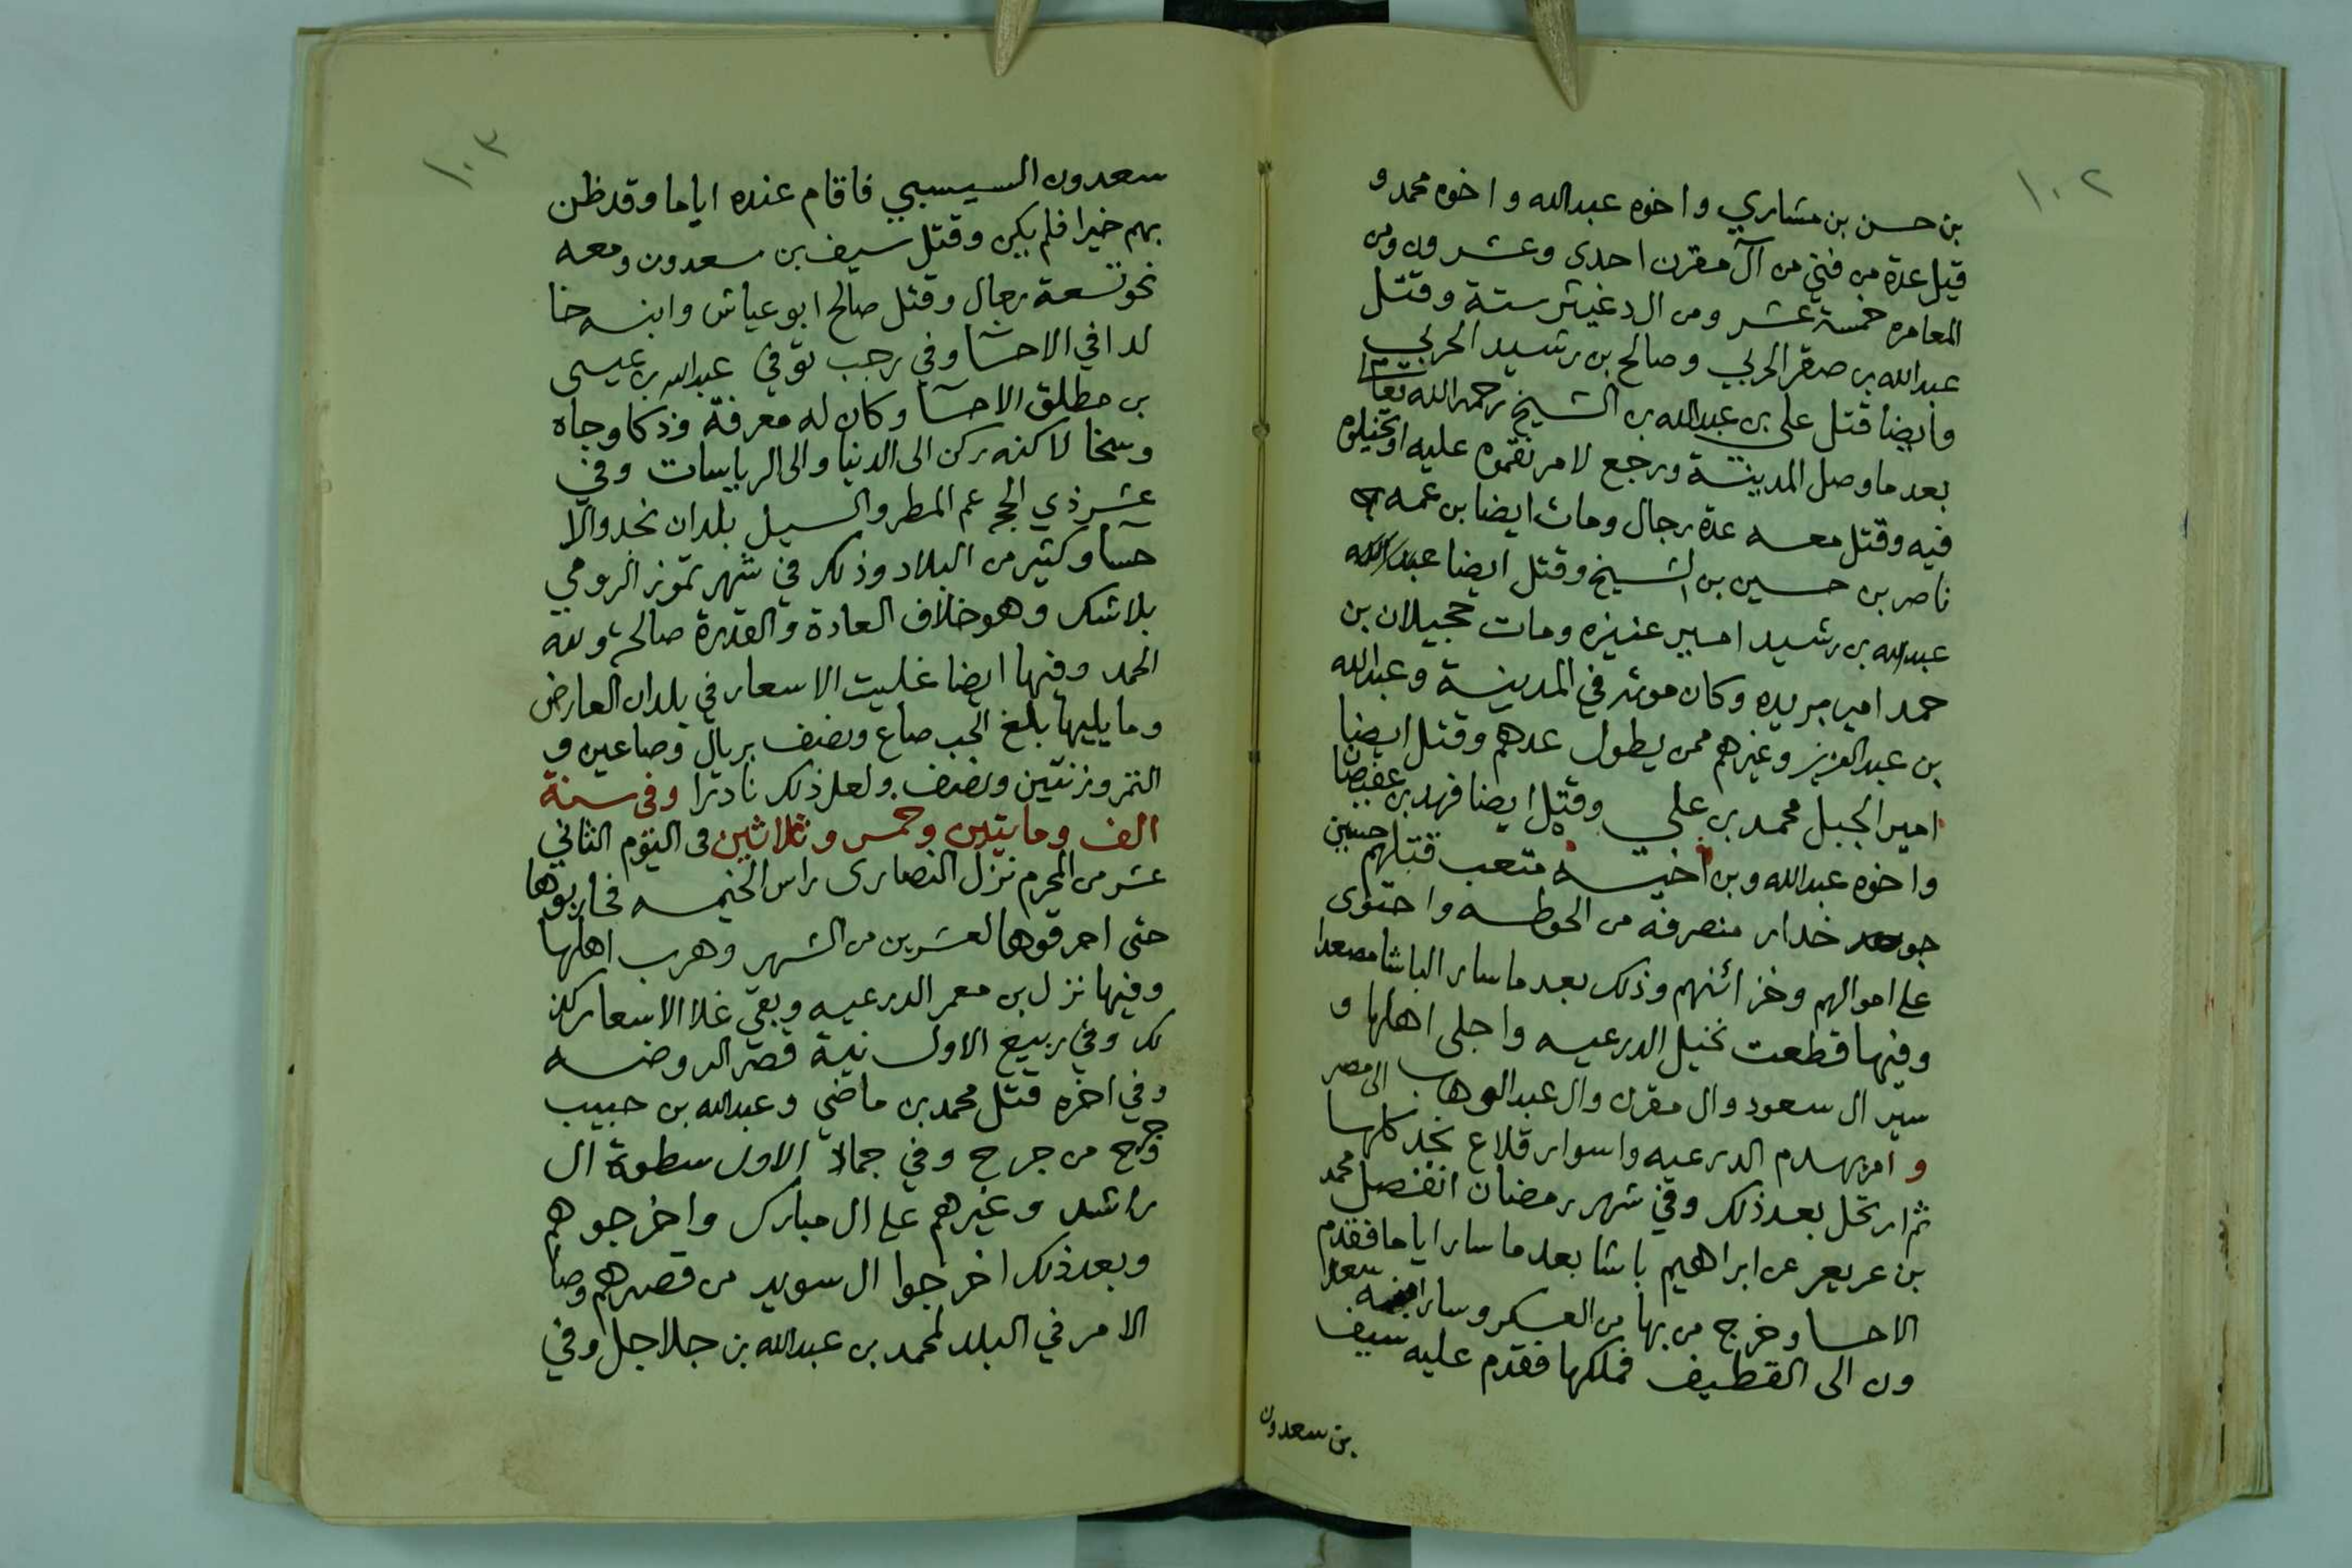 ١٠٢
بن حسن بن مشاري واخوه عبدالله واخوه محمد و
قيل عدة من فني من آل مقرن احدى وعشرون ومن
المعامره خمسة عشر ومن ال دغيثر ستة وقتل
عبدالله بن صقر الحربي وصالح بن رشيد الحربي
وايضا قتل علي بن عبدالله بن الشيخ رحمه الله تعالى
بعد ما وصل المدينة ورجع لامر نقموه عليه او تخيلوه
فيه وقتل معه عدة رجال ومات ايضا بن عمه
ناصر بن حسين بن الشيخ وقتل ايضا عبدالله
عبدالله بن رشيد امير عنيزه ومات حجيلان بن
حمد امير بريده وكان موته في المدينة وعبدالله
بن عبدالعزيز وغيرهم ممن يطول عدهم وقتل ايضا
امير الجبل محمد بن علي وقتل ايضا فهد بن عفيصان
واخوه عبدالله وبن اخيه متعب قتلهم حسين
جوخدار منصرفه من الحوطه واحتوى
على اموالهم وخزائنهم وذلك بعد ما سار الباشا مصعدا
وفيها قطعت نخيل الدرعيه واجلى اهلها و
سير ال سعود وال مقرن وال عبدالوهاب الى مصر
و امر بهدم الدرعيه واسوار قلاع نجد كلها
ثم ارتحل بعد ذلك وفي شهر رمضان انفصل محمد
بن عريعر عن ابراهيم باشا بعد ما سار اياما فقدم
الاحسا وخرج من بها من العسكر وسار ابنه سعد
ون الى القطيف فملكها فقدم عليه سيف
بن سعدون
١٠٣
سعدون السيسبي فاقام عنده اياما وقد ظن
بهم خيرا فلم يكن وقتل سيف بن سعدون ومعه
نحو تسعة رجال وقتل صالح ابو عياش وابنه خا
لد افي الاحسا وفي رجب توفي عبدالله بن عيسى
بن مطلق الاحسا وكان له معرفة وذكا وجاه
وسخا لاكنه ركن الى الدنيا والى الرياسات وفي
عشر ذي الحجه عم المطر والسيل بلدان نجد والا
حسا وكثير من البلاد وذلك في شهر تموز الرومي
بلا شك وهو خلاف العادة والقدرة صالحة ولله
الحمد وفيها ايضا غليت الاسعار في بلدان العارض
وما يليها بلغ الحب صاع ونصف بريال وصاعين و
التمر وزنتين ونصف ولعل ذلك نادرا وفي سنة
الف ومايتين وخمس وثلاثين في اليوم الثاني
عشر من المحرم نزل النصارى راس الخيمه فحاربوها
حتى احرقوها لعشرين من الشهر وهرب اهلها
وفيها نزل بن معمر الدرعيه وبقي غلا الاسعار كذ
لك وفي ربيع الاول نية قصر الروضه
وفي اخره قتل محمد بن ماضي وعبدالله بن حبيب
وجرح من جرح وفي جماد الاول سطوة ال
راشد وغيرهم على ال مبارك واخرجوهم
وبعد ذلك اخرجوا ال سويد من قصرهم وصا
الامر في البلد لمحمد بن عبدالله بن جلاجل وفي